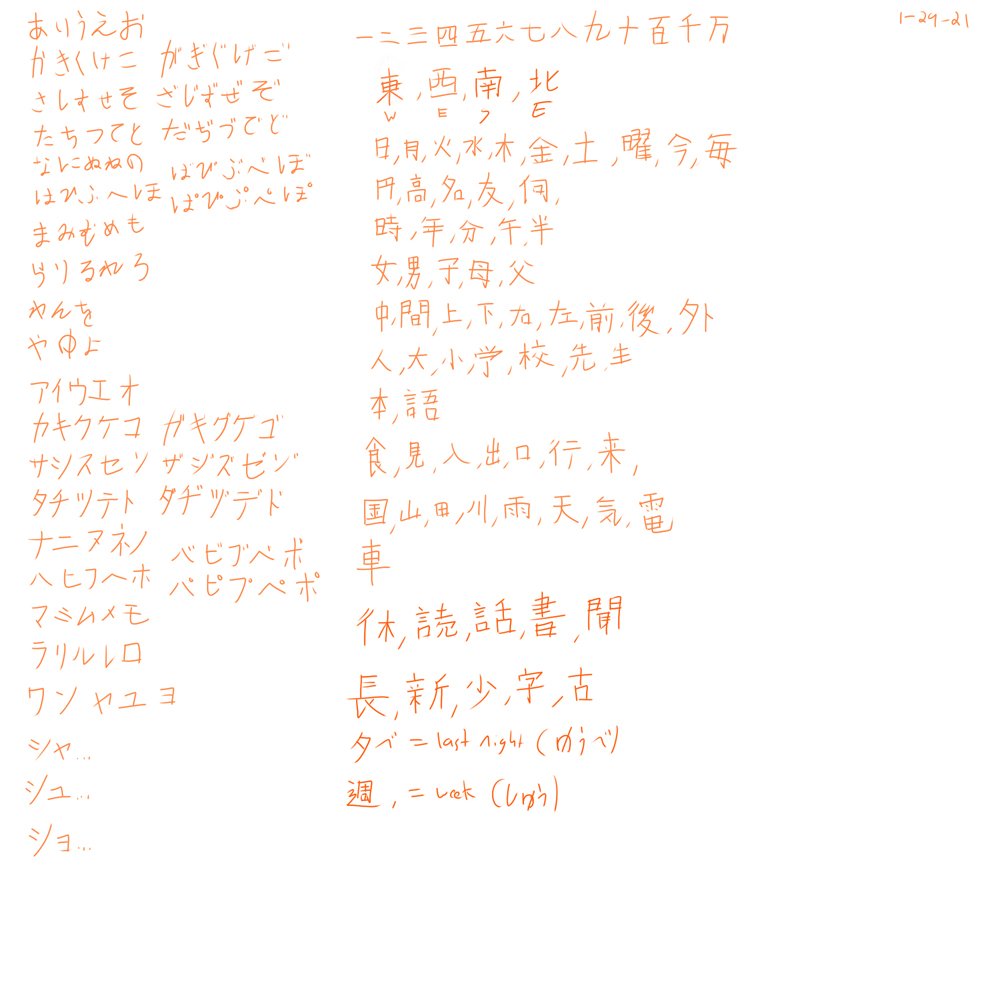 1-29-21
ありうえお
かきくけこ がぎぐげご
さしすせそ ざじずぜぞ
たちつてと だぢづでど
なにぬねの ばびぶべぼ
はひふへほ ぱぴぷぺぽ
まみむめも
らりるれろ
わんを
やゆよ
アイウエオ
カキクケコ ガギグゲゴ
サシスセソ ザジズゼゾ
タチツテト ダヂヅデド
ナニヌネノ バビブベボ
ハヒフヘホ パピプペポ
マミムメモ
ラリルレロ
ワンヤユヨ
シャ...
シュ...
ショ...
一二三四五六七八九十百千万
東,西,南,北
W E フ E
日,月,火,水,木,金,土,曜,今,毎
円,高,名,友,何,
時,年,分,午,半
女,男,子,母,父
中,間,上,下,右,左,前,後,外
人,大,小,学,校,先,生
本,語
食,見,入,出,口,行,来,
国,山,田,川,雨,天,気,電
車
休,読,話,書,聞
長,新,少,字,古
夕べ = last night (ゆうべ)
週, = week (しゅう)